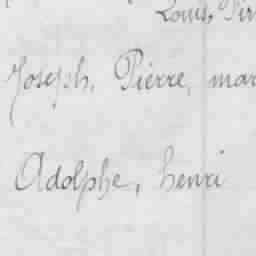 Louis, Pir
Joseph, Pierre, mar
Adolphe, henri